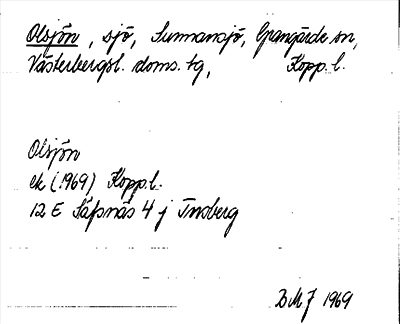 Olsjön, sjö, Sunnansjö, Grangärde sn,
Västerbergsl. doms. tg, Kopp. l.
Olsjön
ek (1969) Kopp.l.
12 E Säfsnäs 4 j Tnsberg
BMJ 1969